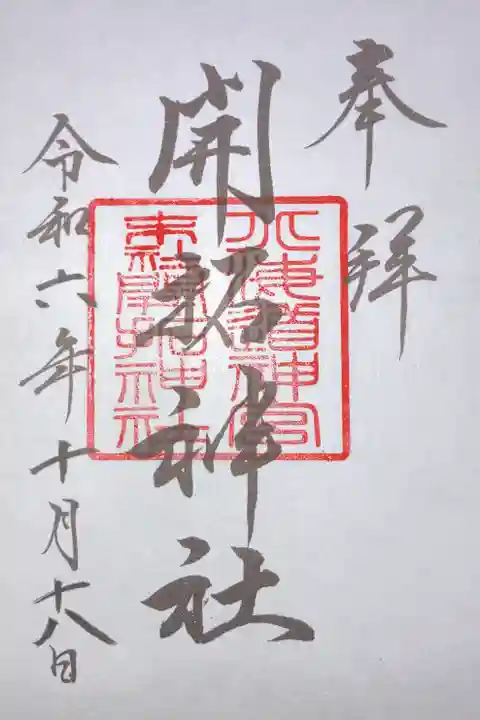 奉拝
開拓神社
令和六年十月十八日
北海道神宮
末社開拓神社